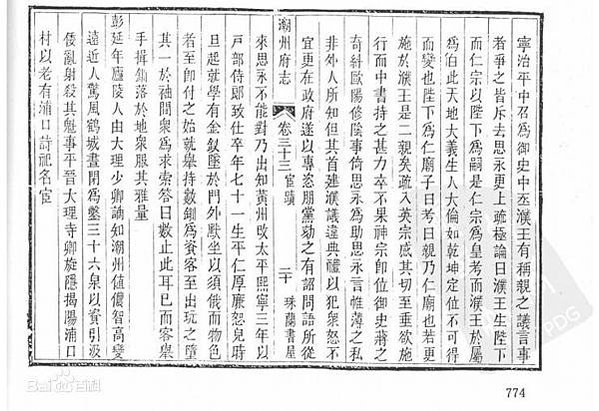 寧治平中召爲御史中丞濮王有稱親之議言事
者爭之皆斥去思永更上疏極論曰濮王生陛下
而仁宗以陛下爲嗣是仁宗爲皇考而濮王於屬
爲伯此天地大義生人大倫如乾坤定位不可得
而變也陛下爲仁廟子曰考曰親乃仁廟也若更
施於濮王是二親矣疏入英宗感其切至垂欲施
行而中書持之甚力卒不果神宗卽位御史蔣之
奇糾歐陽修陰事倚思永爲助思永言帷薄之私
非外人所知但其首建濮議違典禮以犯衆怒不
潮州府志
卷三十三
宦蹟
二十
珠蘭書屋
宜更在政府遂以專恣朋黨劾之有詔問語所從
來思永不能對乃出知黃州改太平熙寧三年以
戸部侍郎致仕卒年七十一生平仁厚廉恕兒時
旦起就學有金釵墜於門外默坐以須俄而物色
者至卽付之始就舉持數釧爲資客至出玩之墮
其一於袖間衆爲求索答曰數止此耳已而客舉
手揖釧落於地衆服其雅量
彭延年廬陵人由大理少卿謫知潮州值儂智高變
遠近人驚風鶴城晝閉爲鑿三十六泉以資引汲
倭亂射殺其魁事平晉大理寺卿旋隱揭陽浦口
村以老有浦口詩祀名宦
774
Bai百科
PDG